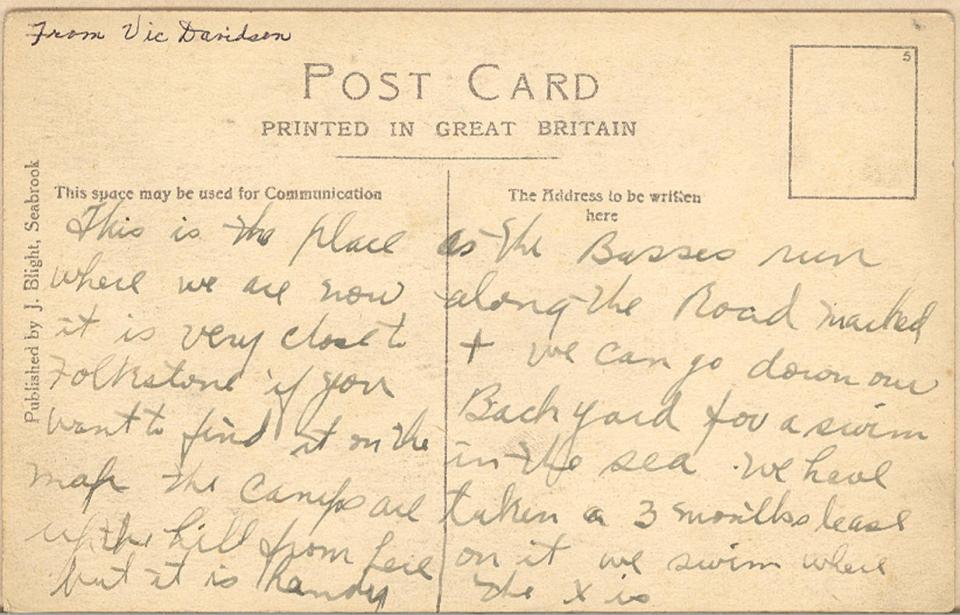 From Vic Davidson
5
POST CARD
PRINTED IN GREAT BRITAIN
Published by J. Blight, Seabrook
This space may be used for Communication
This is the place
where we are now
it is very close to
Folkstone if you
want to find it on the
map the camps are
up the hill from here
but it is handy
The Address to be written
here
as the Busses run
along the Road marked
+ we can go down our
Back yard for a swim
in the sea. we have
taken a 3 months lease
on it we swim where
the x is